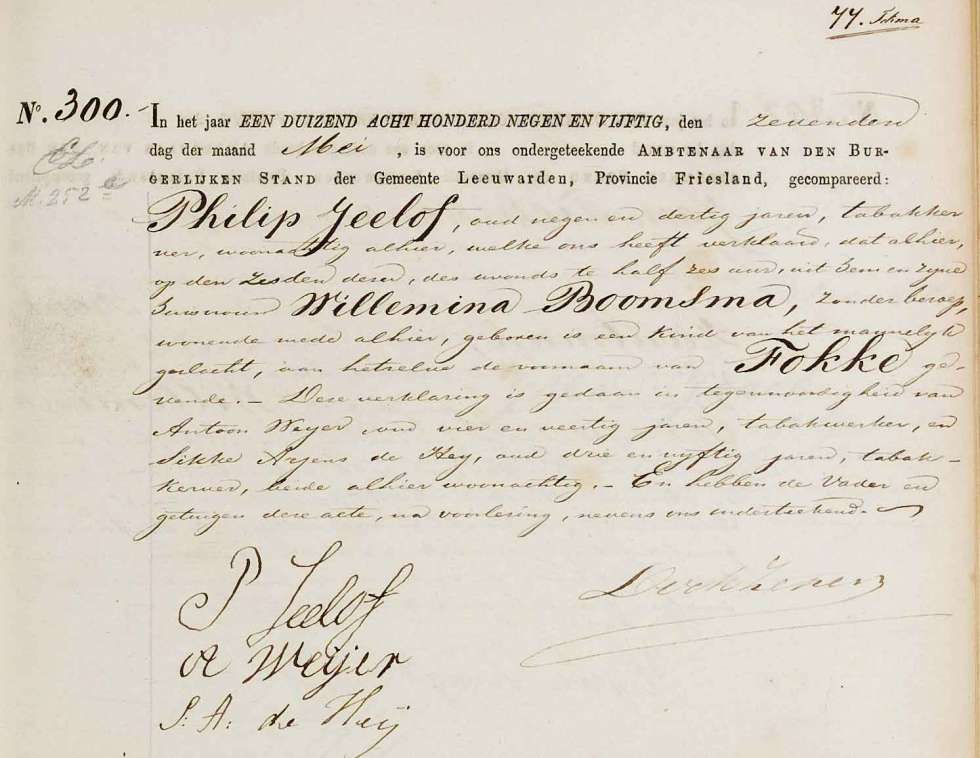 77. Fokma
No. 300.
In het jaar EEN DUIZEND ACHT HONDERD NEGEN EN VIJFTIG, den zevenden
dag der maand Mei, is voor ons ondergeteekende AMBTENAAR VAN DEN BUR-
GERLIJKEN STAND der Gemeente Leeuwarden, Provincie Friesland, gecompareerd:
M. 252
Philip Jeelof, oud negen en dertig jaren, tabakker
ver, woonachtig alhier, welke ons heeft verklaard, dat alhier,
op den zesden dezer, des avonds te half zes uur, uit hem en zijne
huisvrouw Willemina Boomsma, zonder beroep,
wonende mede alhier, geboren is een kind van het mannelijk
geslacht, aan hetzelve de voornaam van Fokke ge-
vende. – Deze verklaring is gedaan in tegenwoordigheid van
Antoon Weyer oud vier en veertig jaren, tabakwerker, en
Sikke Arjens de Hey, oud drie en vyftig jaren, tabak-
kerver, beide alhier woonachtig. – En hebben de Vader en
getuigen deze acte, na voorlezing, nevens ons onderteekend.
P Jeelof
A Weijer
S: A: de Heij